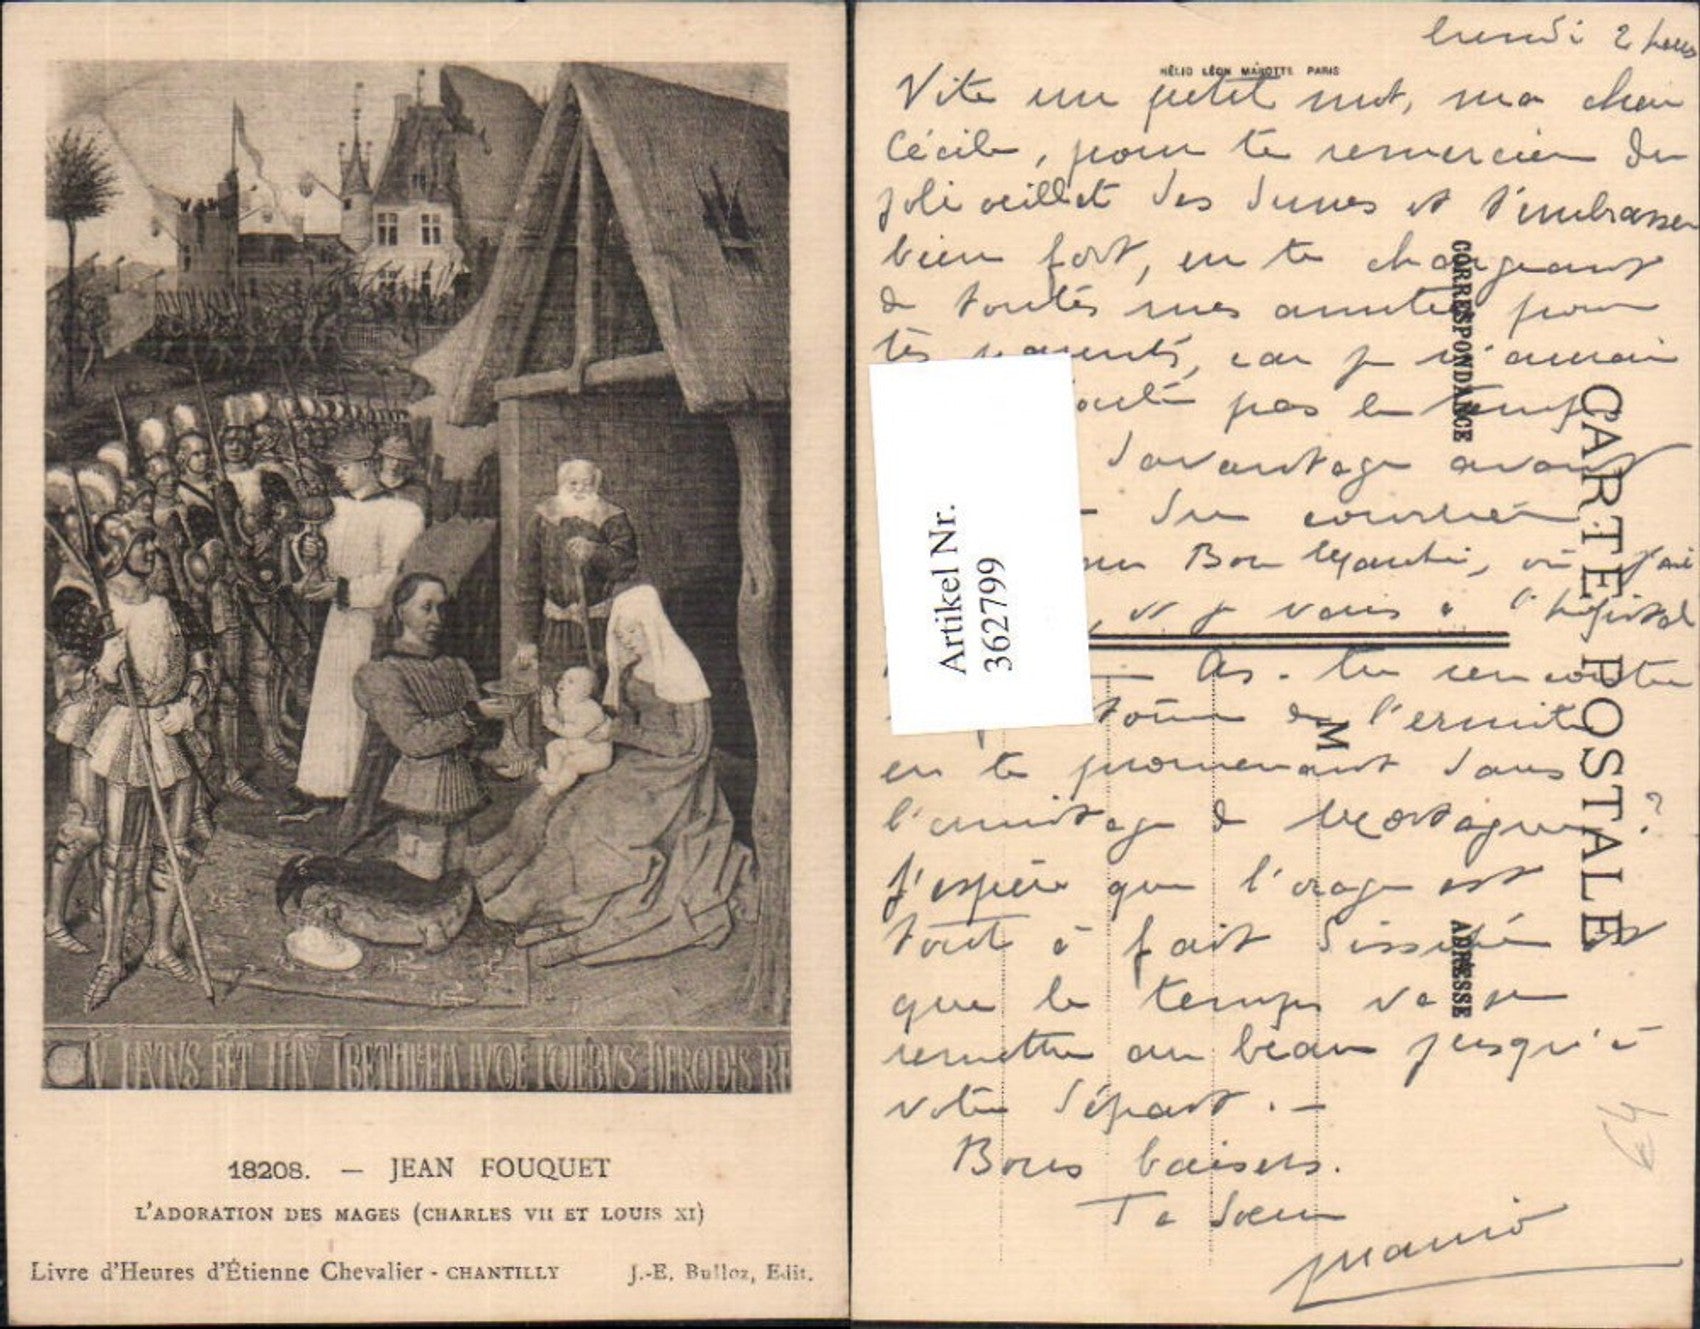 N INTVS EET IHV I BETHLEEM IVDE I DIEBVS HERODIS RE
18208. — JEAN FOUQUET
L'ADORATION DES MAGES (CHARLES VII ET LOUIS XI)
Livre d'Heures d'Étienne Chevalier - CHANTILLY J.-E. Bulloz, Edit.
lundi 2 heures
HÉLIO LÉON MAROTTE PARIS
Vite un petit mot, ma chère
Cécile, pour te remercier du
joli œillet des dunes et t'embrasser
bien fort, en te chargeant
de toutes mes amitiés pour
tes parents, car je n'aurai
pas le temps
davantage avant
du courrier
Bon où j'ai
, et je vais à l'hôpital
As-tu rencontré
de l'ermite
en te promenant dans
l'ermitage de Mortagne ?
J'espère que l'orage est
tout à fait dissipé et
que le temps va se
remettre au beau jusqu'à
votre départ. —
Bons baisers.
Ta sœur
CORRESPONDANCE
CARTE POSTALE
M
ADRESSE
Artikel Nr.
362799